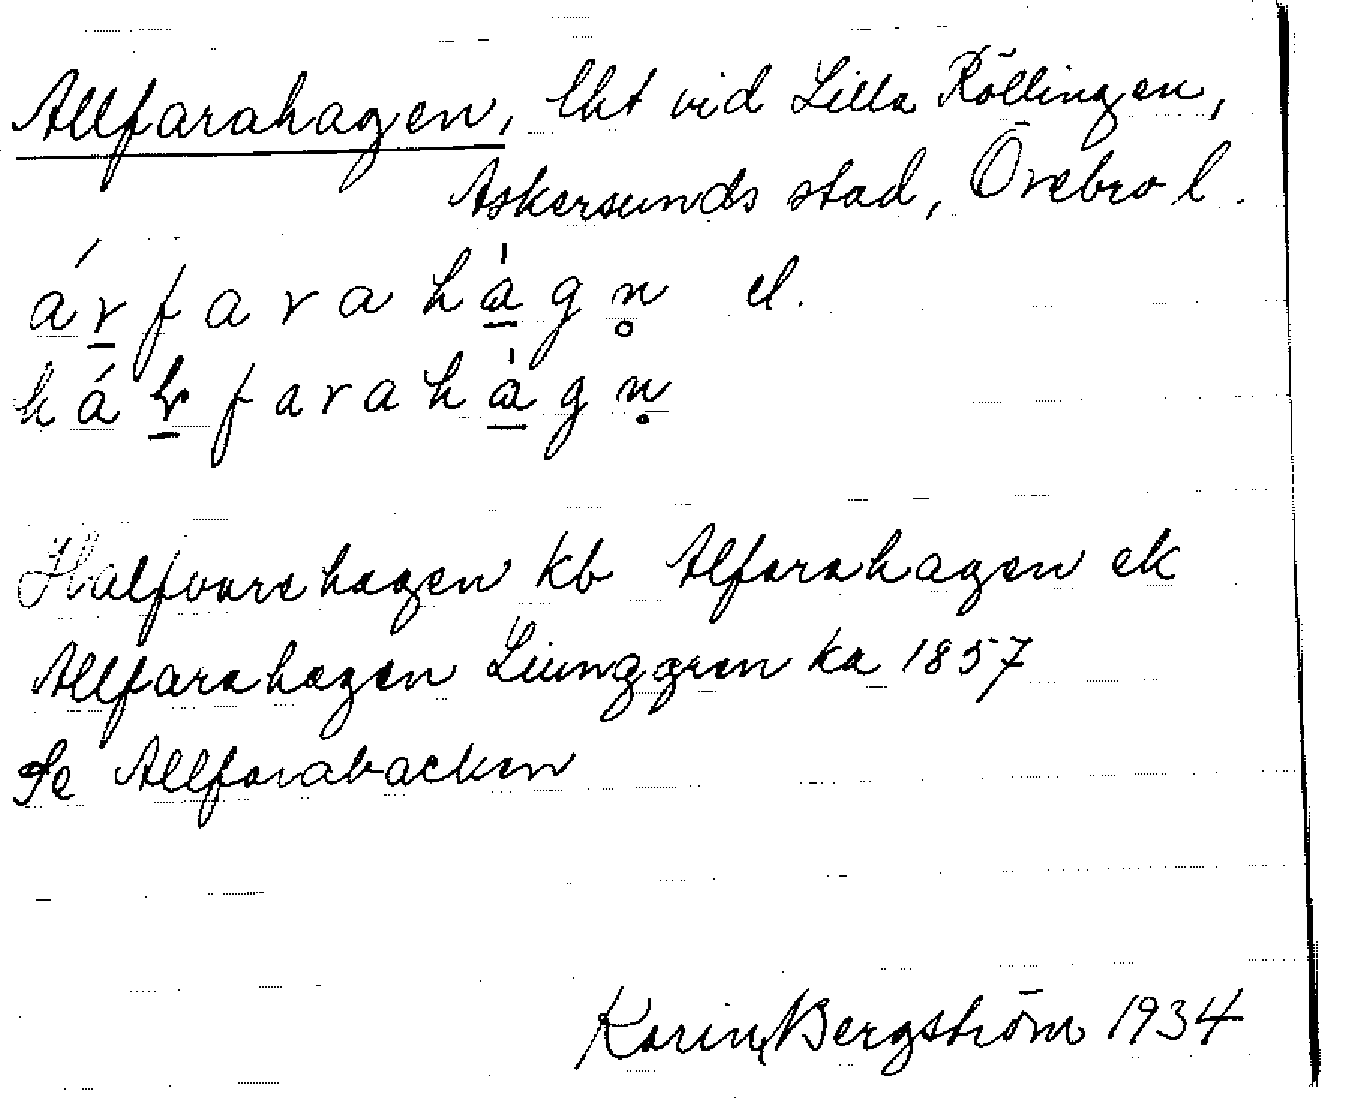 Allfarahagen, lht vid Lilla Köllingen,
Askersunds stad, Örebro l.
árfarahàgn̥ el.
hárfarahàgn̥
Halfvarehagen kb Alfarahagen ek
Allfarahagen Liunggren ka 1857
Se Allfarabacken
Karin Bergström 1934